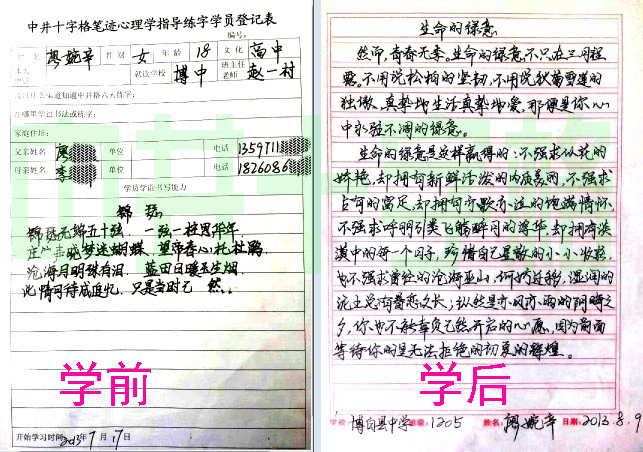 中井十字格笔迹心理学指导练字学员登记表
编号:
姓 名 廖婉辛 性 别 女 年 龄 18 文 化 高中
本人 就读学校 博中 班主任老师 赵一村
通过什么渠道知道中井格六天练字:
在哪里学过书法或练字:
家庭住址:
父亲姓名 廖 单位 电话 1359711
母亲姓名 李 单位 电话 1826086
学员学前书写能力
锦瑟
锦瑟无端五十弦 一弦一柱思华年
庄生晓梦迷蝴蝶 望帝春心托杜鹃
沧海月明珠有泪 蓝田日暖玉生烟
此情可待成追忆 只是当时已 然。
学前
开始学习时间: 2013年7月17日
生命的绿意
然而,青春无季。生命的绿意,不只在三月轻
飏。不用说松柏的坚韧,不用说秋菊雪莲的
独傲,真挚地生活真挚地爱,那便是你心
中永驻不凋的绿意。
生命的绿意是这样赢得的:不强求似花的
娇艳,却拥有新鲜活泼的内质美丽,不强求
占有的富足,却拥有亦歌亦泣的饱满情怀,
不强求呼朋引类飞觞醉月的奢华,却拥有淡
漠中的每一个日子,珍惜自己星散的小小收获,
也不强求曾经的沧海巫山,何妨迁移,湿润的
泥土总有眷恋久长;纵然是亦日亦雨的阴晴之
夕,你也不能辜负已然开启的心愿,因为前面
等待你的是无法拒绝的初夏的辉煌。
学后
学校: 博白县中学 班级: 1205 姓名: 廖婉辛 日期: 2013.8.9